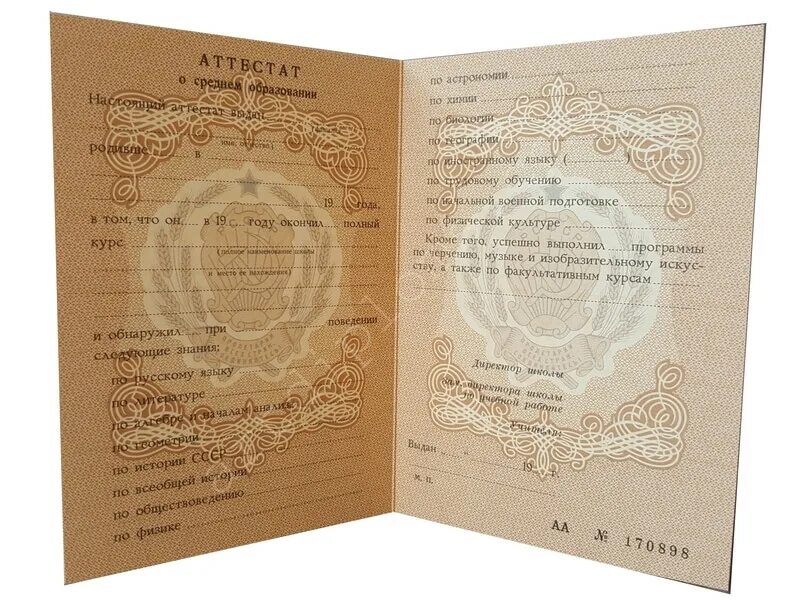 АТТЕСТАТ
о среднем образовании
Настоящий аттестат выдан
(фамилия,
имя, отчество)
родивше в
19 года,
в том, что он в 19 году окончил полный
курс
(полное наименование школы
и место ее нахождения)
и обнаружил при поведении
следующие знания:
по русскому языку
по литературе
по алгебре и началам анализа
по геометрии
по истории СССР
по всеобщей истории
по обществоведению
по физике
по астрономии
по химии
по биологии
по географии
по иностранному языку ( )
по трудовому обучению
по начальной военной подготовке
по физической культуре
Кроме того, успешно выполнил программы
по черчению, музыке и изобразительному искус-
ству, а также по факультативным курсам
Директор школы
Зам. директора школы
по учебной работе
Учителя:
Выдан „ “ 19 г.
м. п.
АА № 170898